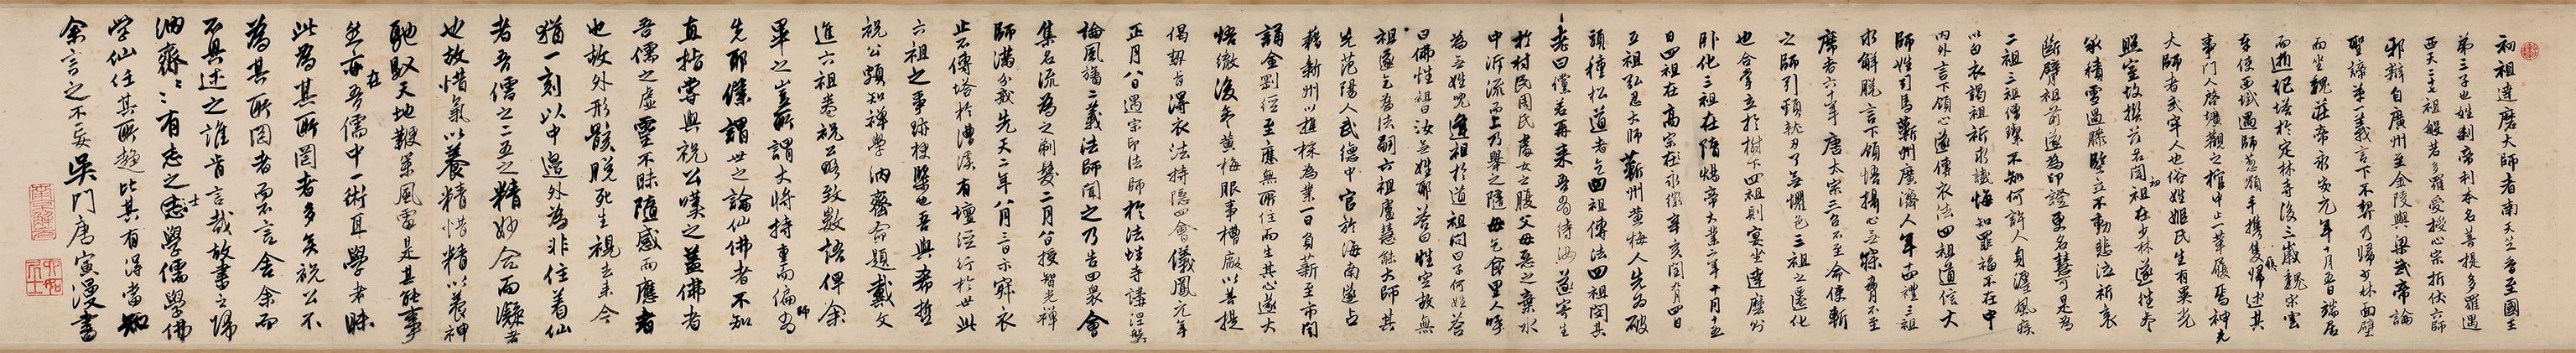 初祖達磨大師者南天竺香至國王
第三子也姓剎帝利本名菩提多羅遇
西天二十七祖般若多羅受授心宗折伏六師
邪辯自廣州至金陵與梁武帝論
聖諦第一義言下不契乃歸少林面壁
而坐魏莊帝永安元年十月五日端居
而逝起塔於定林寺後三歲魏宋雲
奉使西域遇師葱嶺手攜隻履歸述其
事門人啓壙觀之棺中止一革履焉神光
大師者武牢人也俗姓姬氏生有異光
照室故授名光聞初祖在少林遂往參
承積雪過膝堅立不動悲泣祈哀
斷臂祖前遂為印證更名慧可是為
二祖三祖僧璨不知何許人身纏風疾
以白衣謁祖祈求懺悔知罪福不在中
內外言下領心遂傳衣法四祖道信大
師姓司馬蘄州廣濟人年十四禮三祖
求解脫言下領悟攝心無寐脅不至
席者六十年唐太宗三召不至命使斬
之師引頸就刃了無懼色三祖之遷化
也合掌立於樹下四祖則宴坐達磨則
臥化三祖在隋煬帝大業二年十月十五
日四祖在高宗永徽辛亥閏九月四日
五祖弘忍大師蘄州黃梅人先為破
頭種松道者乞四祖傳法四祖閔其
老曰儻若再來吾當待汝遂寄生
於村民周氏處女之腹父母惡之棄水
中泝流而上乃舉之隨母乞食里人呼
為無姓兒逢祖於道祖問曰子何姓答
曰佛性祖曰汝無姓耶答曰性空故無
祖遂乞為法嗣六祖盧慧能大師其
先范陽人武德中官於海南遂占
籍新州以樵採為業一日負薪至市聞
誦金剛經至應無所住而生其心遂大
悟徹後參黃梅服事槽廠以菩提
偈契旨得衣法持隱四會儀鳳元年
正月八日遇宗印法師於法性寺講涅槃
論風旛二義法師聞之乃告四眾會
集名流為之剃髮二月八日授智光禪
師滿分戒先天二年八月三日示寂衣
止不傳塔於漕溪有壇經行於世此
六祖之事跡梗槩也吾與希哲
祝公頗知禪學汭齋命題戴文
進六祖卷祝公略致數語俾余
畢之豈所謂大將持重而偏師為
先耶余謂世之論仙佛者不知
直指旁與祝公嘆之蓋佛者
吾儒之虛靈不昧隨感而應者
也故外形骸脫死生視去來今
猶一刻以中邊外為非住着仙
者吾儒之二五之精妙合而凝者
也故惜氣以養精惜精以養神
馳馭天地鞭策風雷是其能事
然亦在吾儒中一術耳學者昧
此為其所罔者多矣祝公不
為其所罔者而不言舍余而
不具述之誰肯言哉故書之歸
汭齋汭齋有志之士志學儒學佛
學仙任其所趨比其有得當知
余言之不妄吳門唐寅漫書